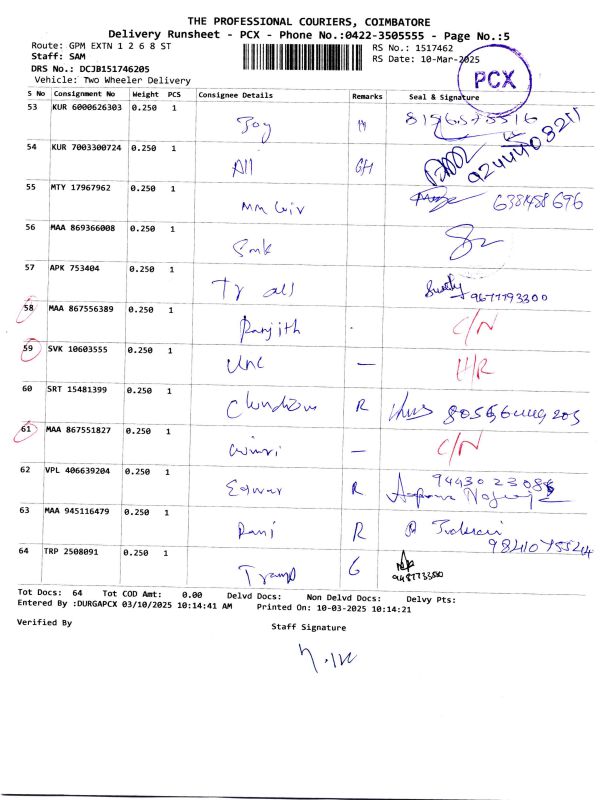 THE PROFESSIONAL COURIERS, COIMBATORE
Delivery Runsheet - PCX - Phone No.:0422-3505555 - Page No.:5
Route: GPM EXTN 1 2 6 8 ST RS No.: 1517462
Staff: SAM RS Date: 10-Mar-2025
DRS No.: DCJB151746205
PCX
Vehicle: Two Wheeler Delivery
S No Consignment No Weight PCS Consignee Details Remarks Seal & Signature
53 KUR 6000626303 0.250 1
Joy
54 KUR 7003300724 0.250 1
All GH 9244403211
55 MTY 17967962 0.250 1
56 MAA 869366008 0.250 1
57 APK 753404 0.250 1
9677793300
58 MAA 867556389 0.250 1
Ranjith C/N
59 SVK 10603555 0.250 1
UNC — H/R
60 SRT 15481399 0.250 1
R
61 MAA 867551827 0.250 1
— C/N
62 VPL 406639204 0.250 1
R
63 MAA 945116479 0.250 1
Rani R
64 TRP 2508091 0.250 1
G
Tot Docs: 64 Tot COD Amt: 0.00 Delvd Docs: Non Delvd Docs: Delvy Pts:
Entered By :DURGAPCX 03/10/2025 10:14:41 AM Printed On: 10-03-2025 10:14:21
Verified By Staff Signature